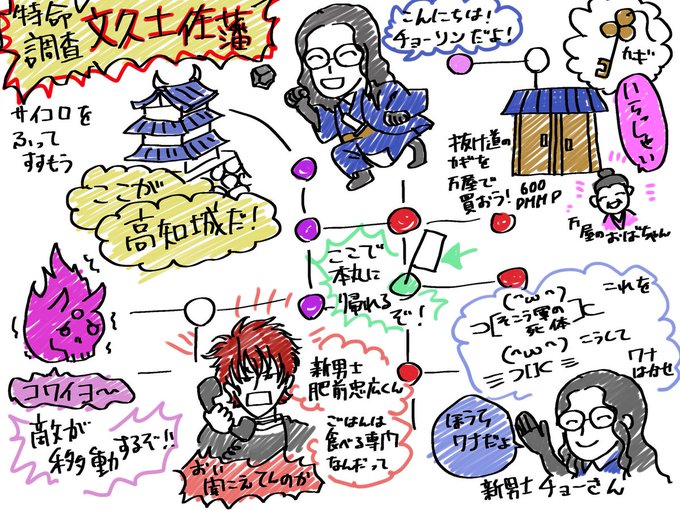 特命
調査
文久土佐藩
こんにちは!
チョーリンだよ!
カギ
いらっしゃい
サイコロを
ふって
すすもう
ここが
高知城だ!
抜け道の
カギを
万屋で
買おう!
600
DMMP
万屋のおばちゃん
ここで
本丸に
帰れる
ぞ!
(^ω^)
⊃[そこら辺の死体]⊂
(^ω^)
≡⊃[]⊂≡
これを
こうして
ワナ
はかせ
コワイヨ〜
敵が
移動するぞ!!
新男士
肥前忠広くん
ごはんは
食べる専門
なんだって
おい
聞こえてんのか
ほうら
ワナだよ
新男士チョーさん